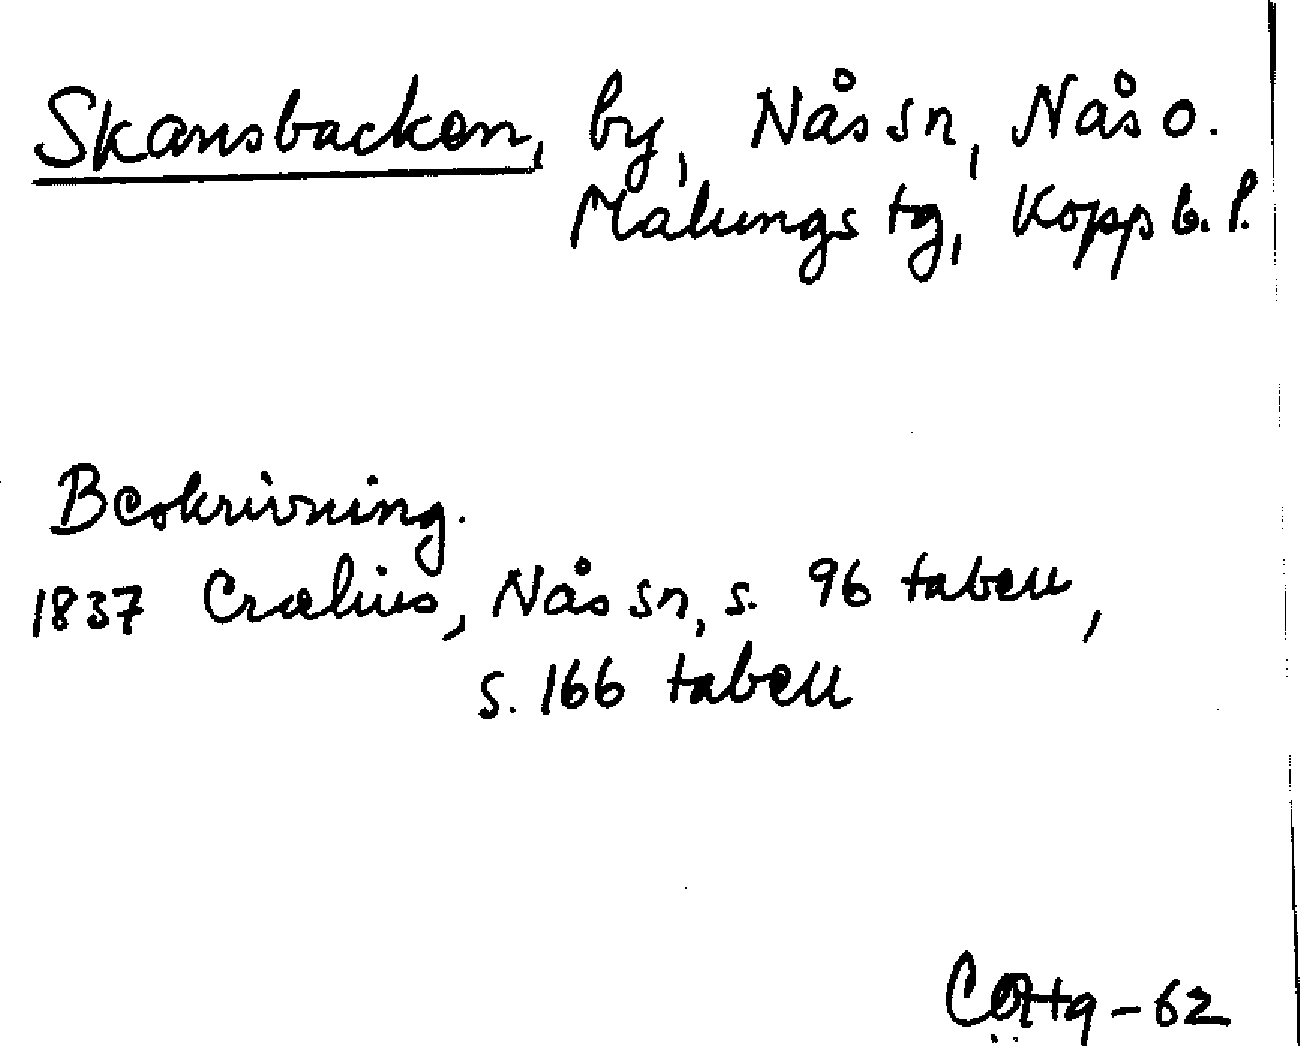 Skansbacken, by, Nås sn, Nås o.
Malungs tg, Koppb. l.
Beskrivning.
1837 Crælius, Nås sn, s. 96 tabell,
s. 166 tabell
-62